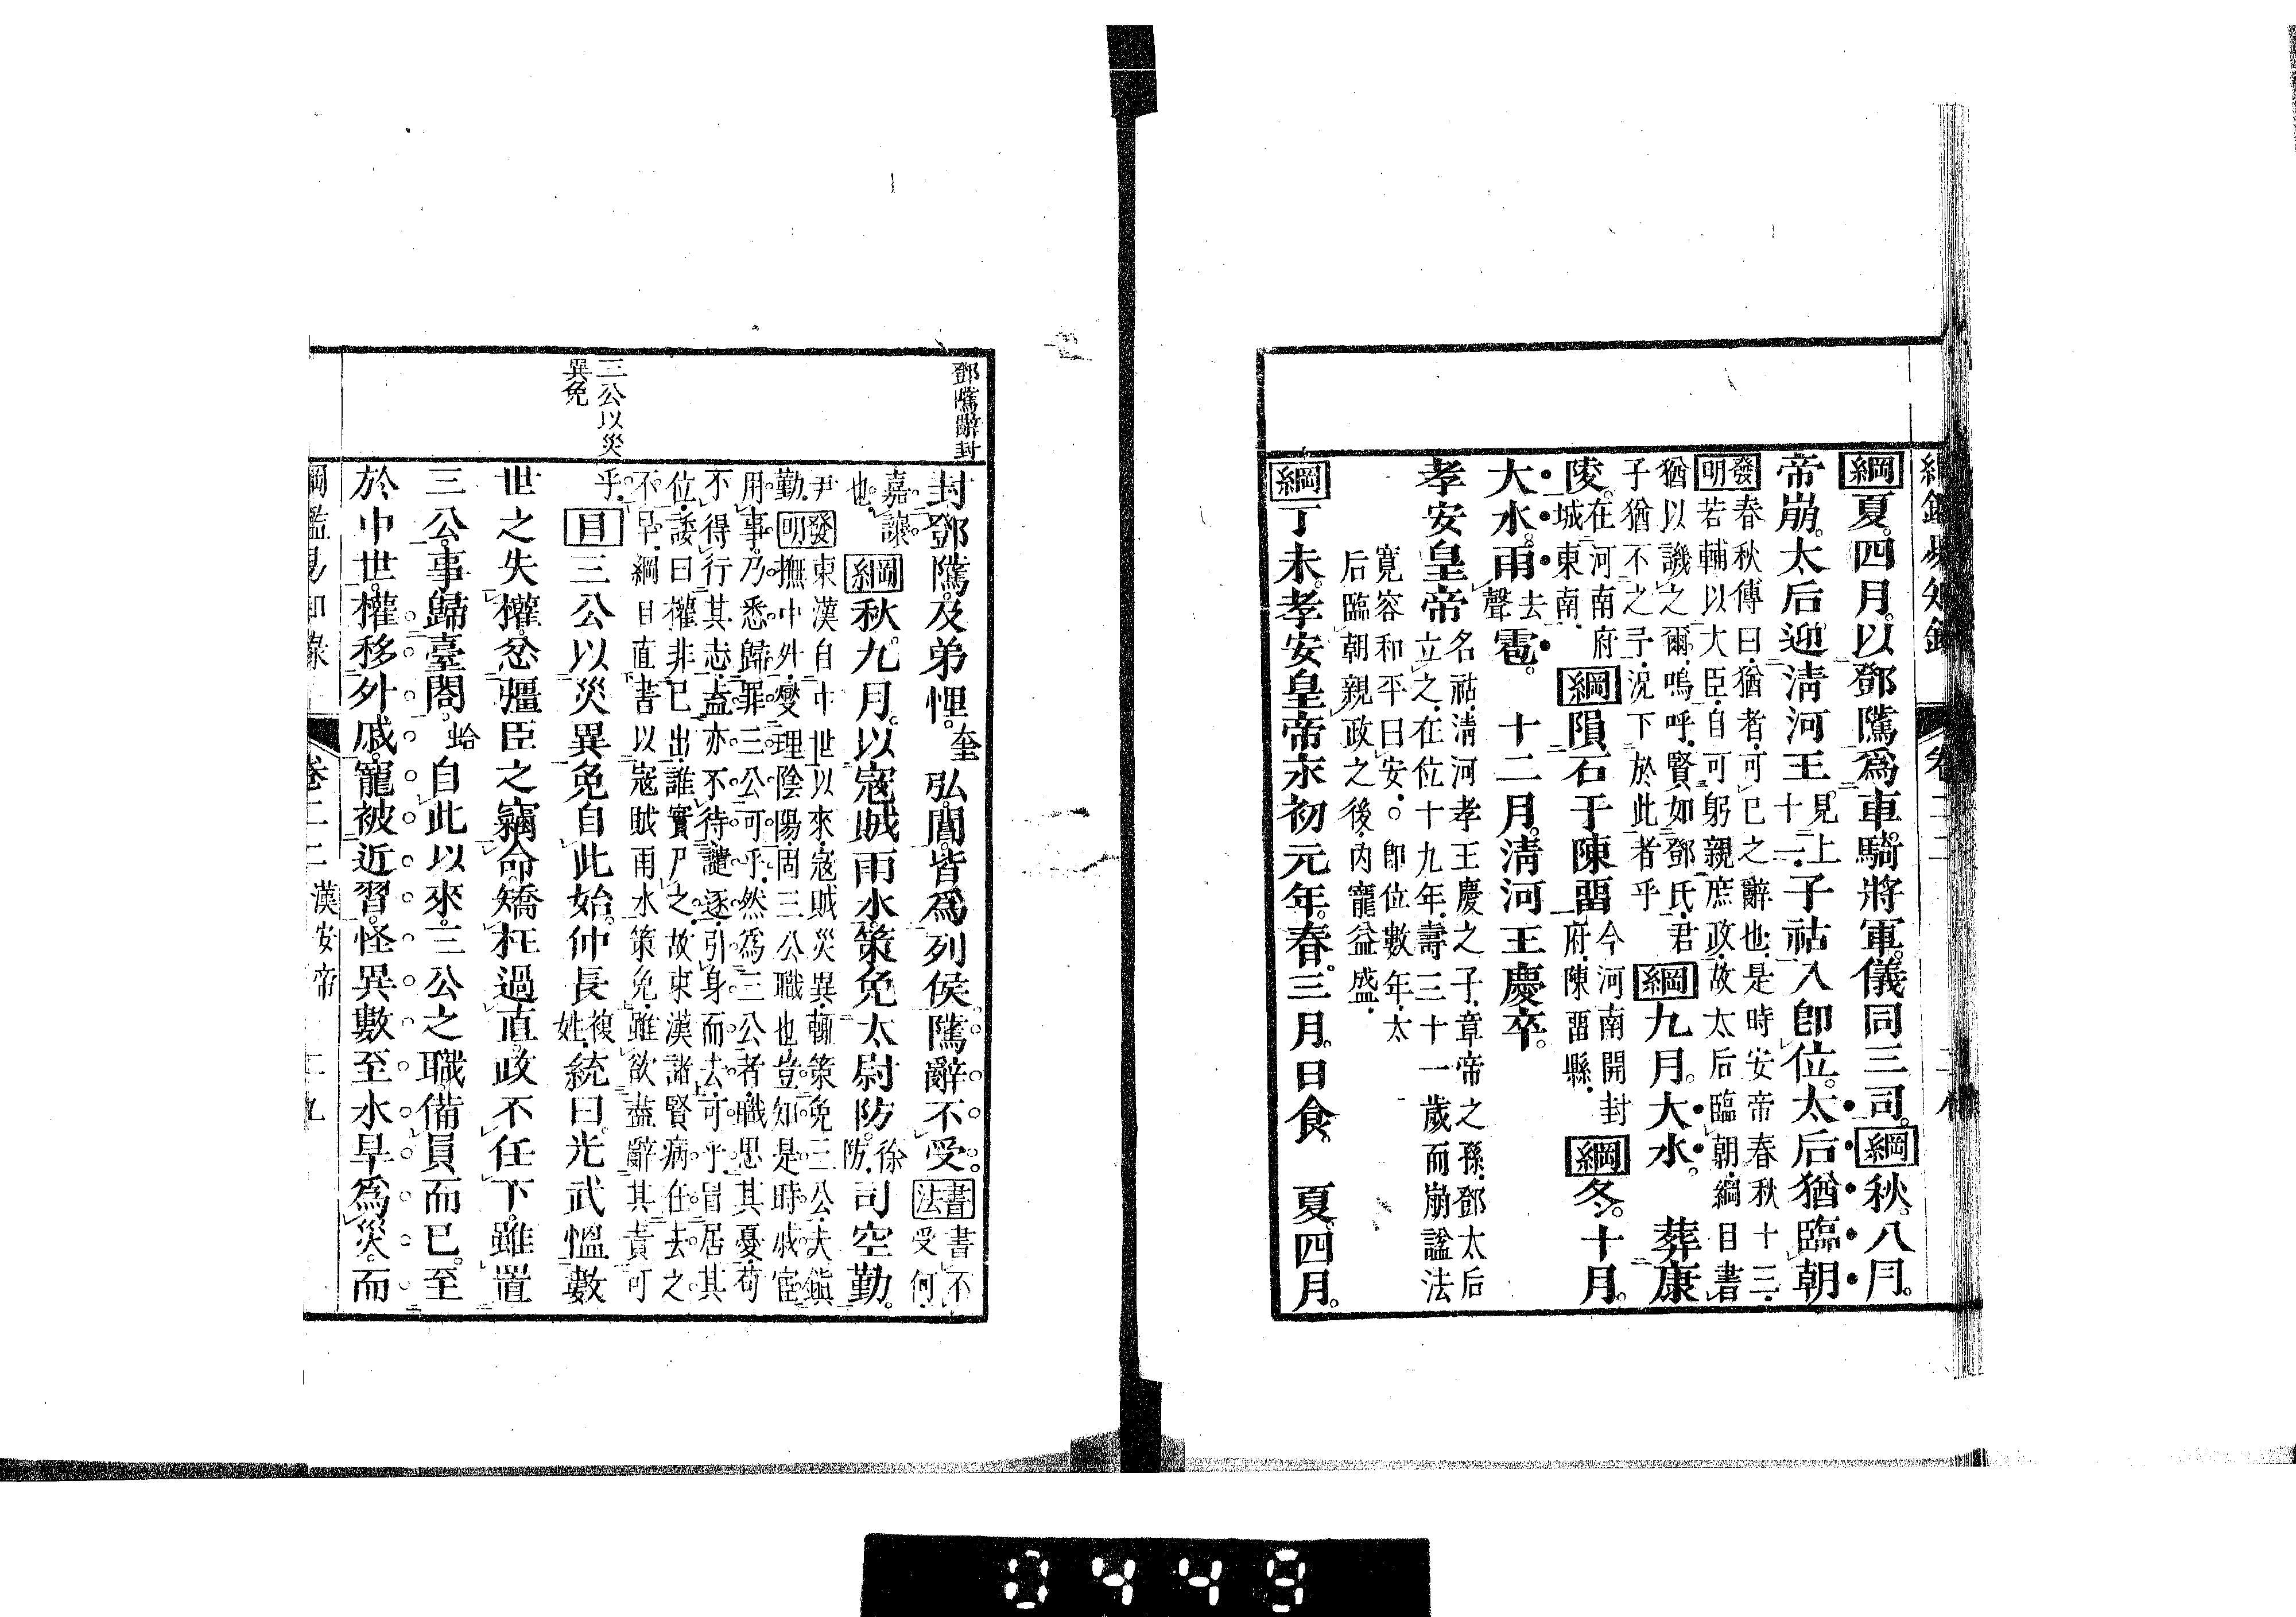 綱夏。四月。以鄧隲爲車騎將軍。儀同三司。綱秋。八月。
帝崩。太后迎淸河王見上十二。子祜入卽位。太后猶臨朝
發明春秋傳曰。猶者。可已之辭也。是時安帝春秋十三。
若輔以大臣。自可躬親庶政。故太后臨朝。綱目書
猶以譏之爾。嗚呼。賢如鄧氏。君
子猶不之予。況下於此者乎
綱九月。大水。 葬康
陵。在河南府城東南。綱隕石于陳畱今河南開封府陳畱縣。綱冬。十月。
大水。雨去聲雹。 十二月。淸河王慶卒。
孝安皇帝名祜。淸河孝王慶之子。章帝之孫。鄧太后
立之。在位十九年。壽三十一歲而崩。諡法
寬容和平曰安。○卽位數年。太
后臨朝。親政之後。內寵益盛。
綱丁未。孝安皇帝永初元年。春。三月。日食。 夏。四月。
鄧隲辭封
封鄧隲。及弟悝。奎弘。閶。皆爲列侯。隲辭不受。書法書不受何。
嘉讓也。綱秋。九月。以寇賊雨水。策免太尉防。徐防。司空勤。
尹勤。發明東漢自中世以來。寇賊災異。輒策免三公。夫鎭
撫中外。燮理陰陽。固三公職也。豈知是時戚宦
用事。乃悉歸罪三公可乎。然爲三公者。職思其憂。苟
不得行其志。盍亦不待譴逐。引身而去可乎。冒居其
位。諉曰權非已出。誰實尸之。故東漢諸賢病在去之
不早。綱目直書以寇賊雨水策免。雖欲盡辭其責可
乎。
三公以災
異免
目三公以災異免自此始。仲長複姓。統曰。光武慍數
世之失權。忿彊臣之竊命。矯枉過直。政不任下。雖置
三公。事歸臺閣。蛤自此以來。三公之職。備員而已。至
於中世。權移外戚。寵被近習。怪異數至水旱爲災。而
綱鑑易知錄
卷二二 漢安帝
二九